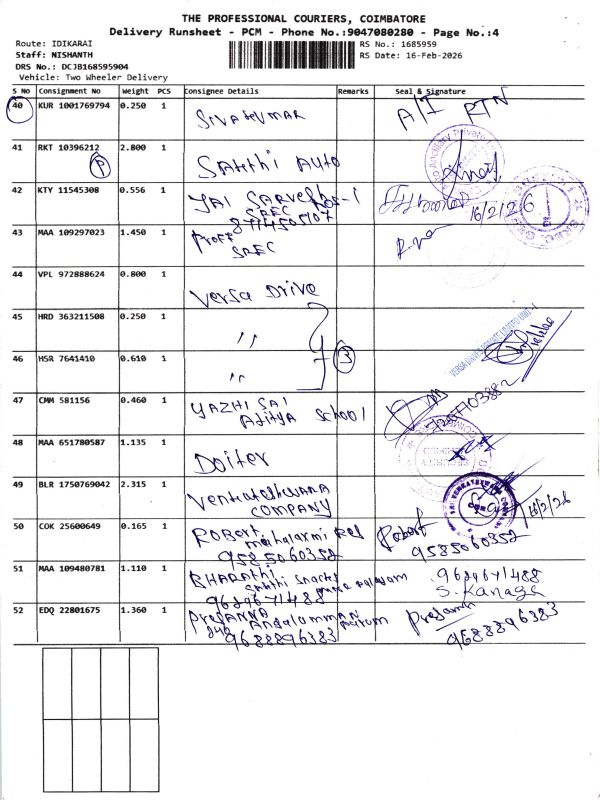 THE PROFESSIONAL COURIERS, COIMBATORE
Delivery Runsheet - PCM - Phone No.:9047080280 - Page No.:4
Route: IDIKARAI
RS No.: 1685959
Staff: NISHANTH
RS Date: 16-Feb-2026
DRS No.: DCJB168595904
Vehicle: Two Wheeler Delivery
S No Consignment No Weight PCS Consignee Details Remarks Seal & Signature
40 KUR 1001769794 0.250 1 SIVAKUMAR A/I RTN
41 RKT 10396212 2.800 1 Sakthi Auto
P
42 KTY 11545308 0.556 1 JAI 16/2/26
SREC
43 MAA 109297023 1.450 1 Proff
SREC
44 VPL 972888624 0.800 1 Versa Drive
45 HRD 363211508 0.250 1 ''
46 HSR 7641410 0.610 1 '' 3
47 CMM 581156 0.460 1 YAZHI SAI
Aditya School
48 MAA 651780587 1.135 1 Doiter
49 BLR 1750769042 2.315 1 Venkateshwara
COMPANY 16/2/26
50 COK 25600649 0.165 1 Robert Robert
9585060352 9585060352
51 MAA 109480781 1.110 1 BHARATHI 9629671488
Sakthi Snacks
9629671488 S. Kanaga
52 EDQ 22801675 1.360 1
9688896383 9688896383